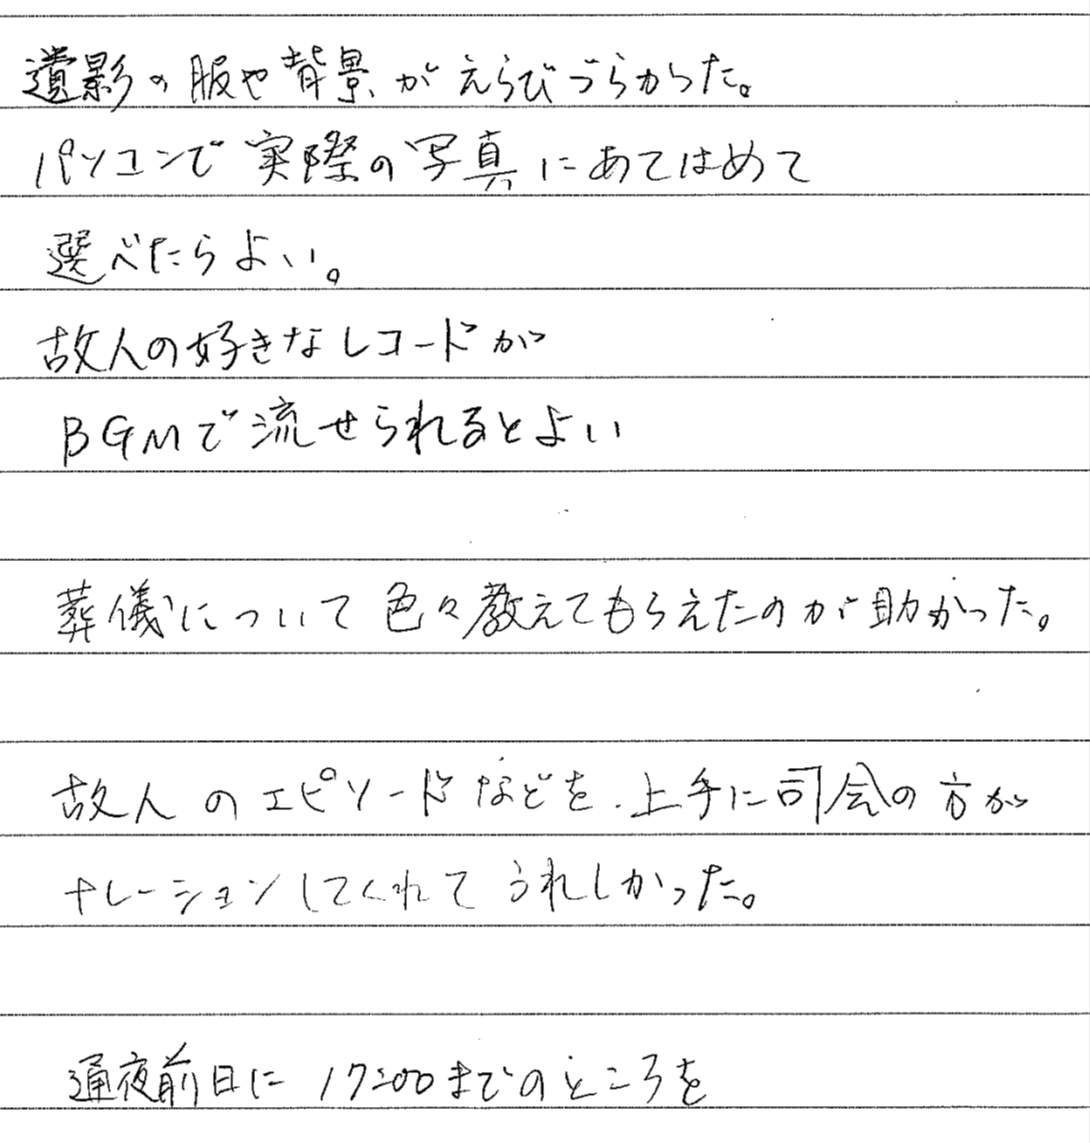 遺影の服や背景がえらびづらかった。
パソコンで実際の写真にあてはめて
選べたらよい。
故人の好きなレコードが
BGMで流せられるとよい
葬儀について色々教えてもらえたのが助かった。
故人のエピソードなどを、上手に司会の方が
ナレーションしてくれてうれしかった。
通夜前日に17:00までのところを